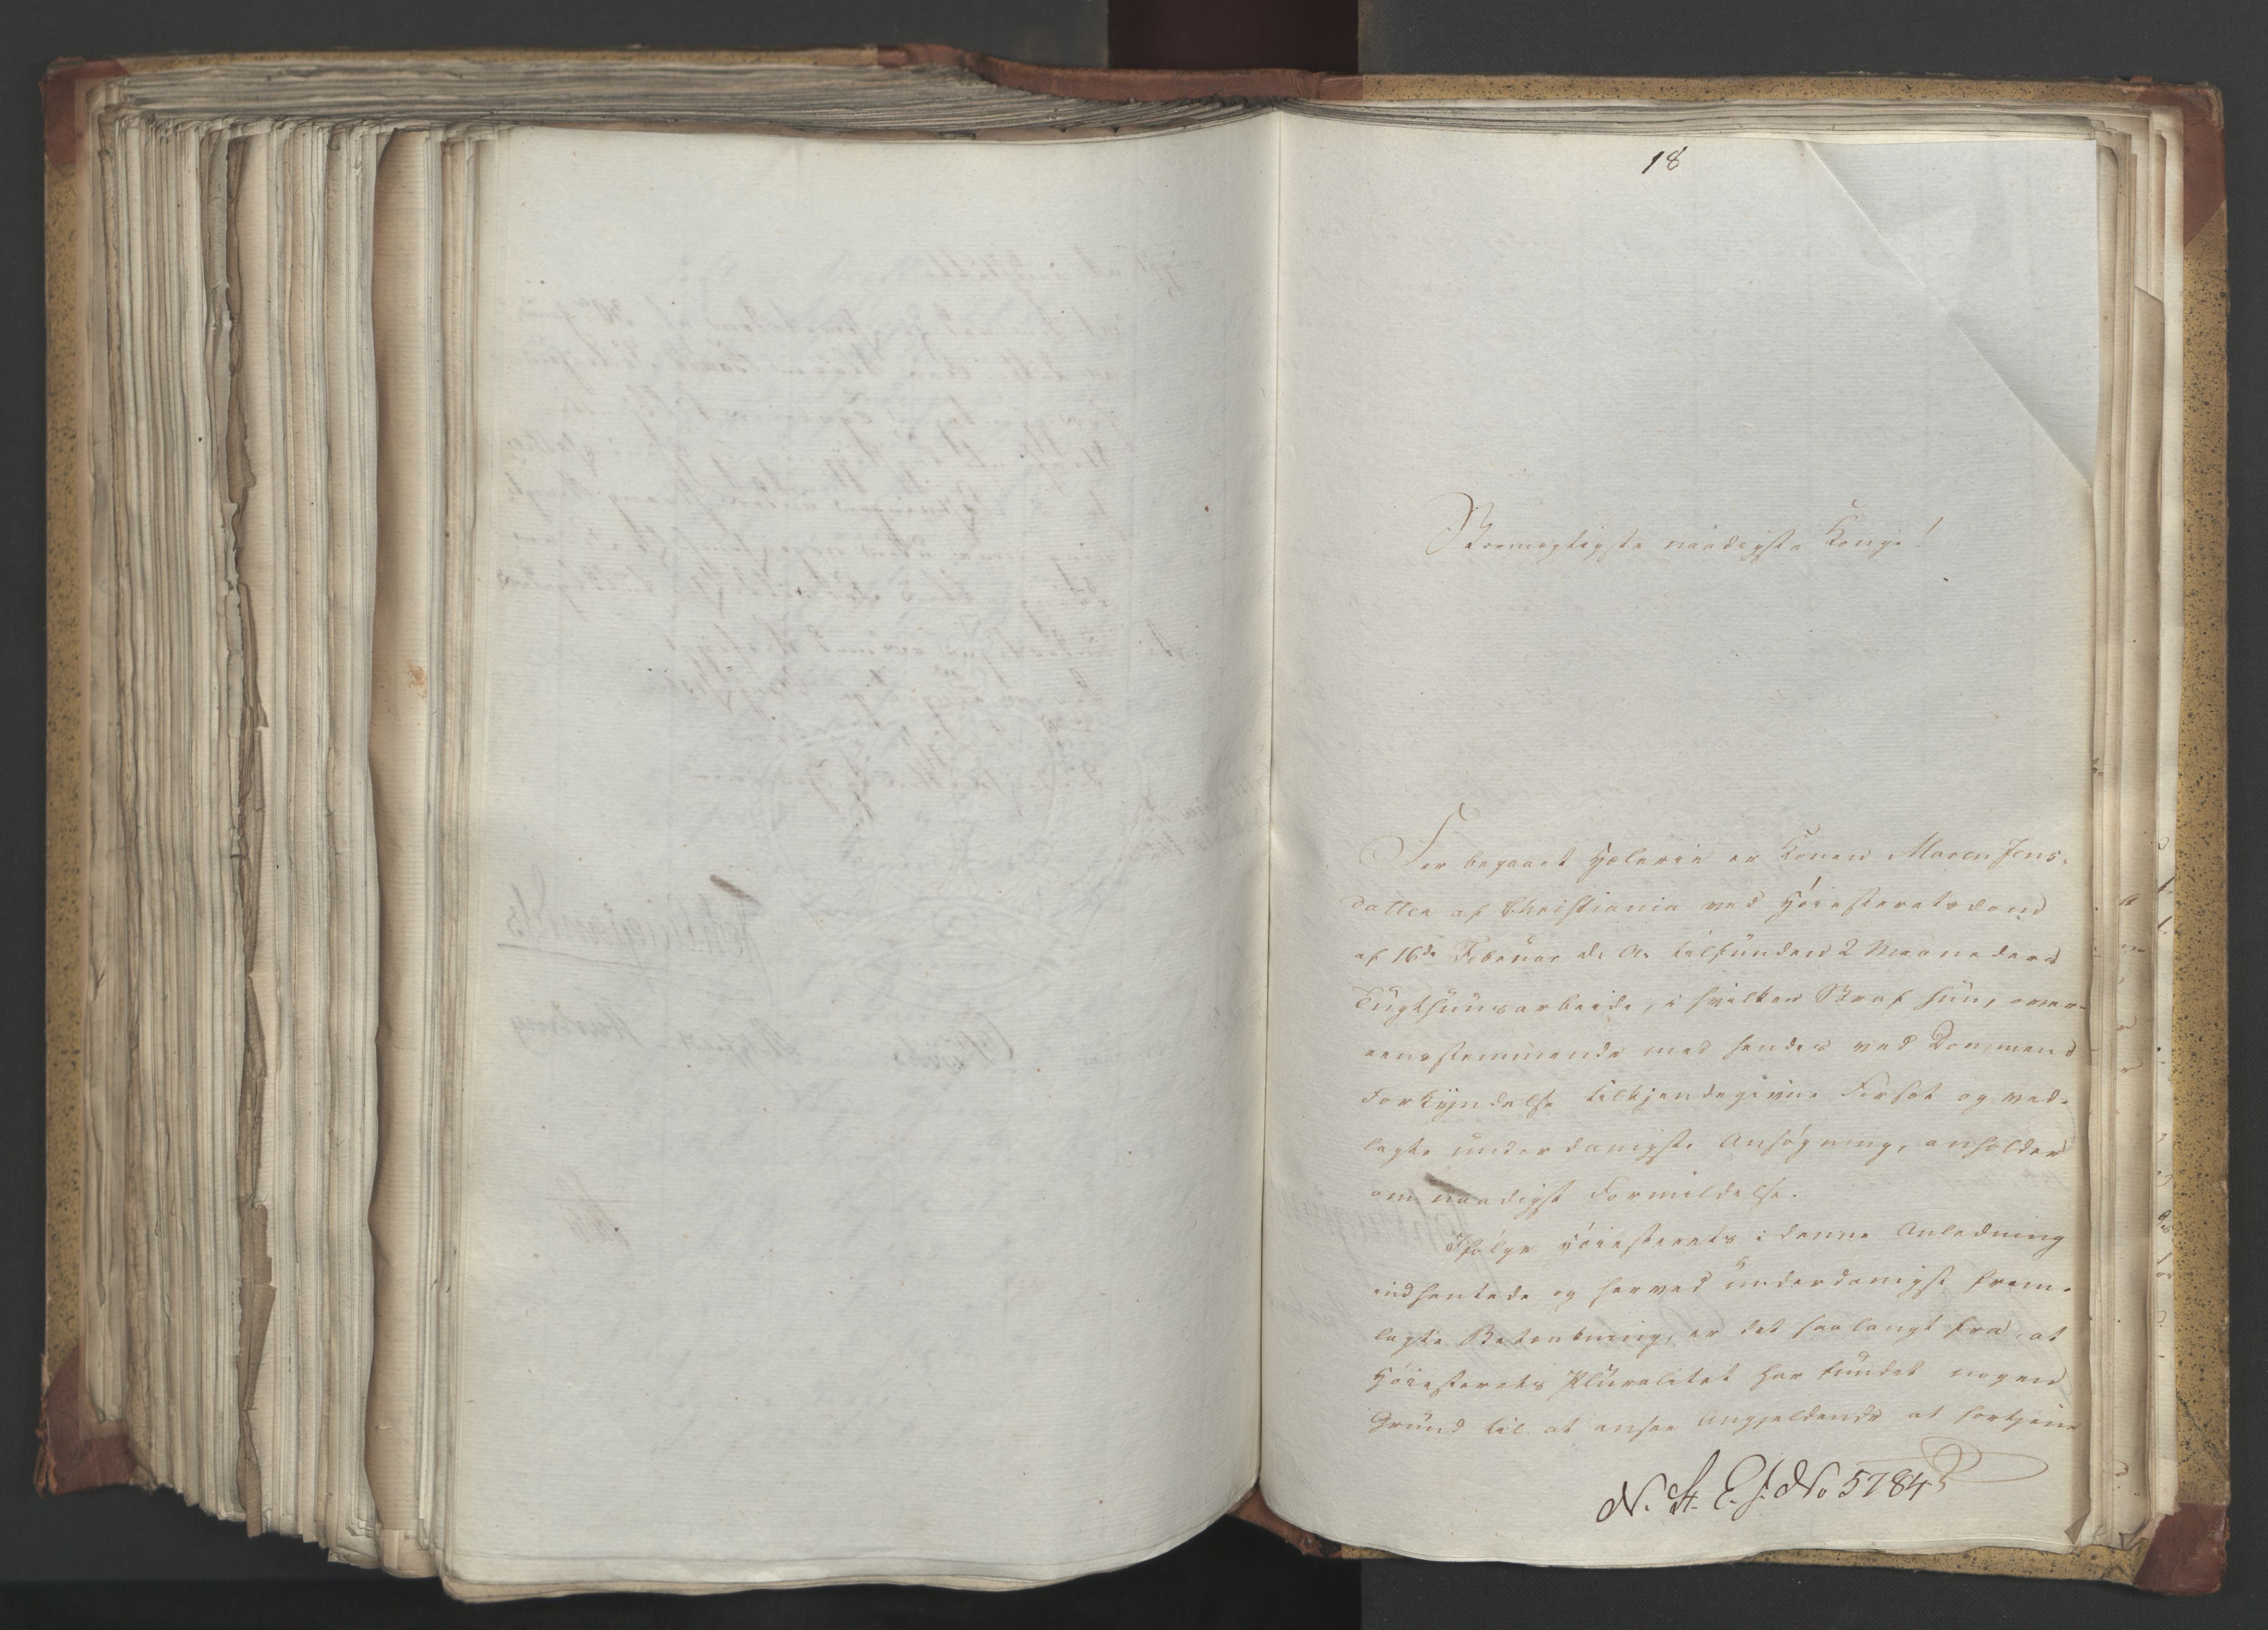 18
Stormægtigste naadigste Konge!
For begaaet Hæleri er Konen Maren Jens-
datter af Christiania ved Høiesteretsdom
af 16de Februar d. A. tilfunden 2 Maaneders
Tugthuusarbeide, i hvilken Straf hun, over-
eensstemmende med hendes ved Dommens
Forkyndelse tilkjendegivne Forsæt og ved-
lagte underdanigste Ansøgning, anholder
om naadigst Formildelse.
Ifølge Høiesterets i denne Anledning
indhentede og herved underdanigst frem-
lagte Betænkning, er det saalangt fra, at
Høiesterets Pluralitet har fundet nogen
Grund til at ansee Angjeldende at fortjene
N. St. E. J. No 5784